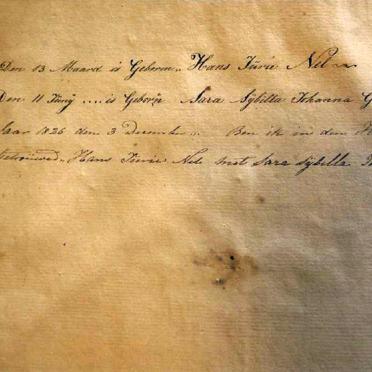 Den 13 Maard is Geboren.. Hans Jurie Nel
Den 11 Juny .... is Geboren Sara Sybilla Johanna G
Jaar 1826 den 3 December ... Ben ik in den H
Hans Jurie Nel met Sara Sybilla